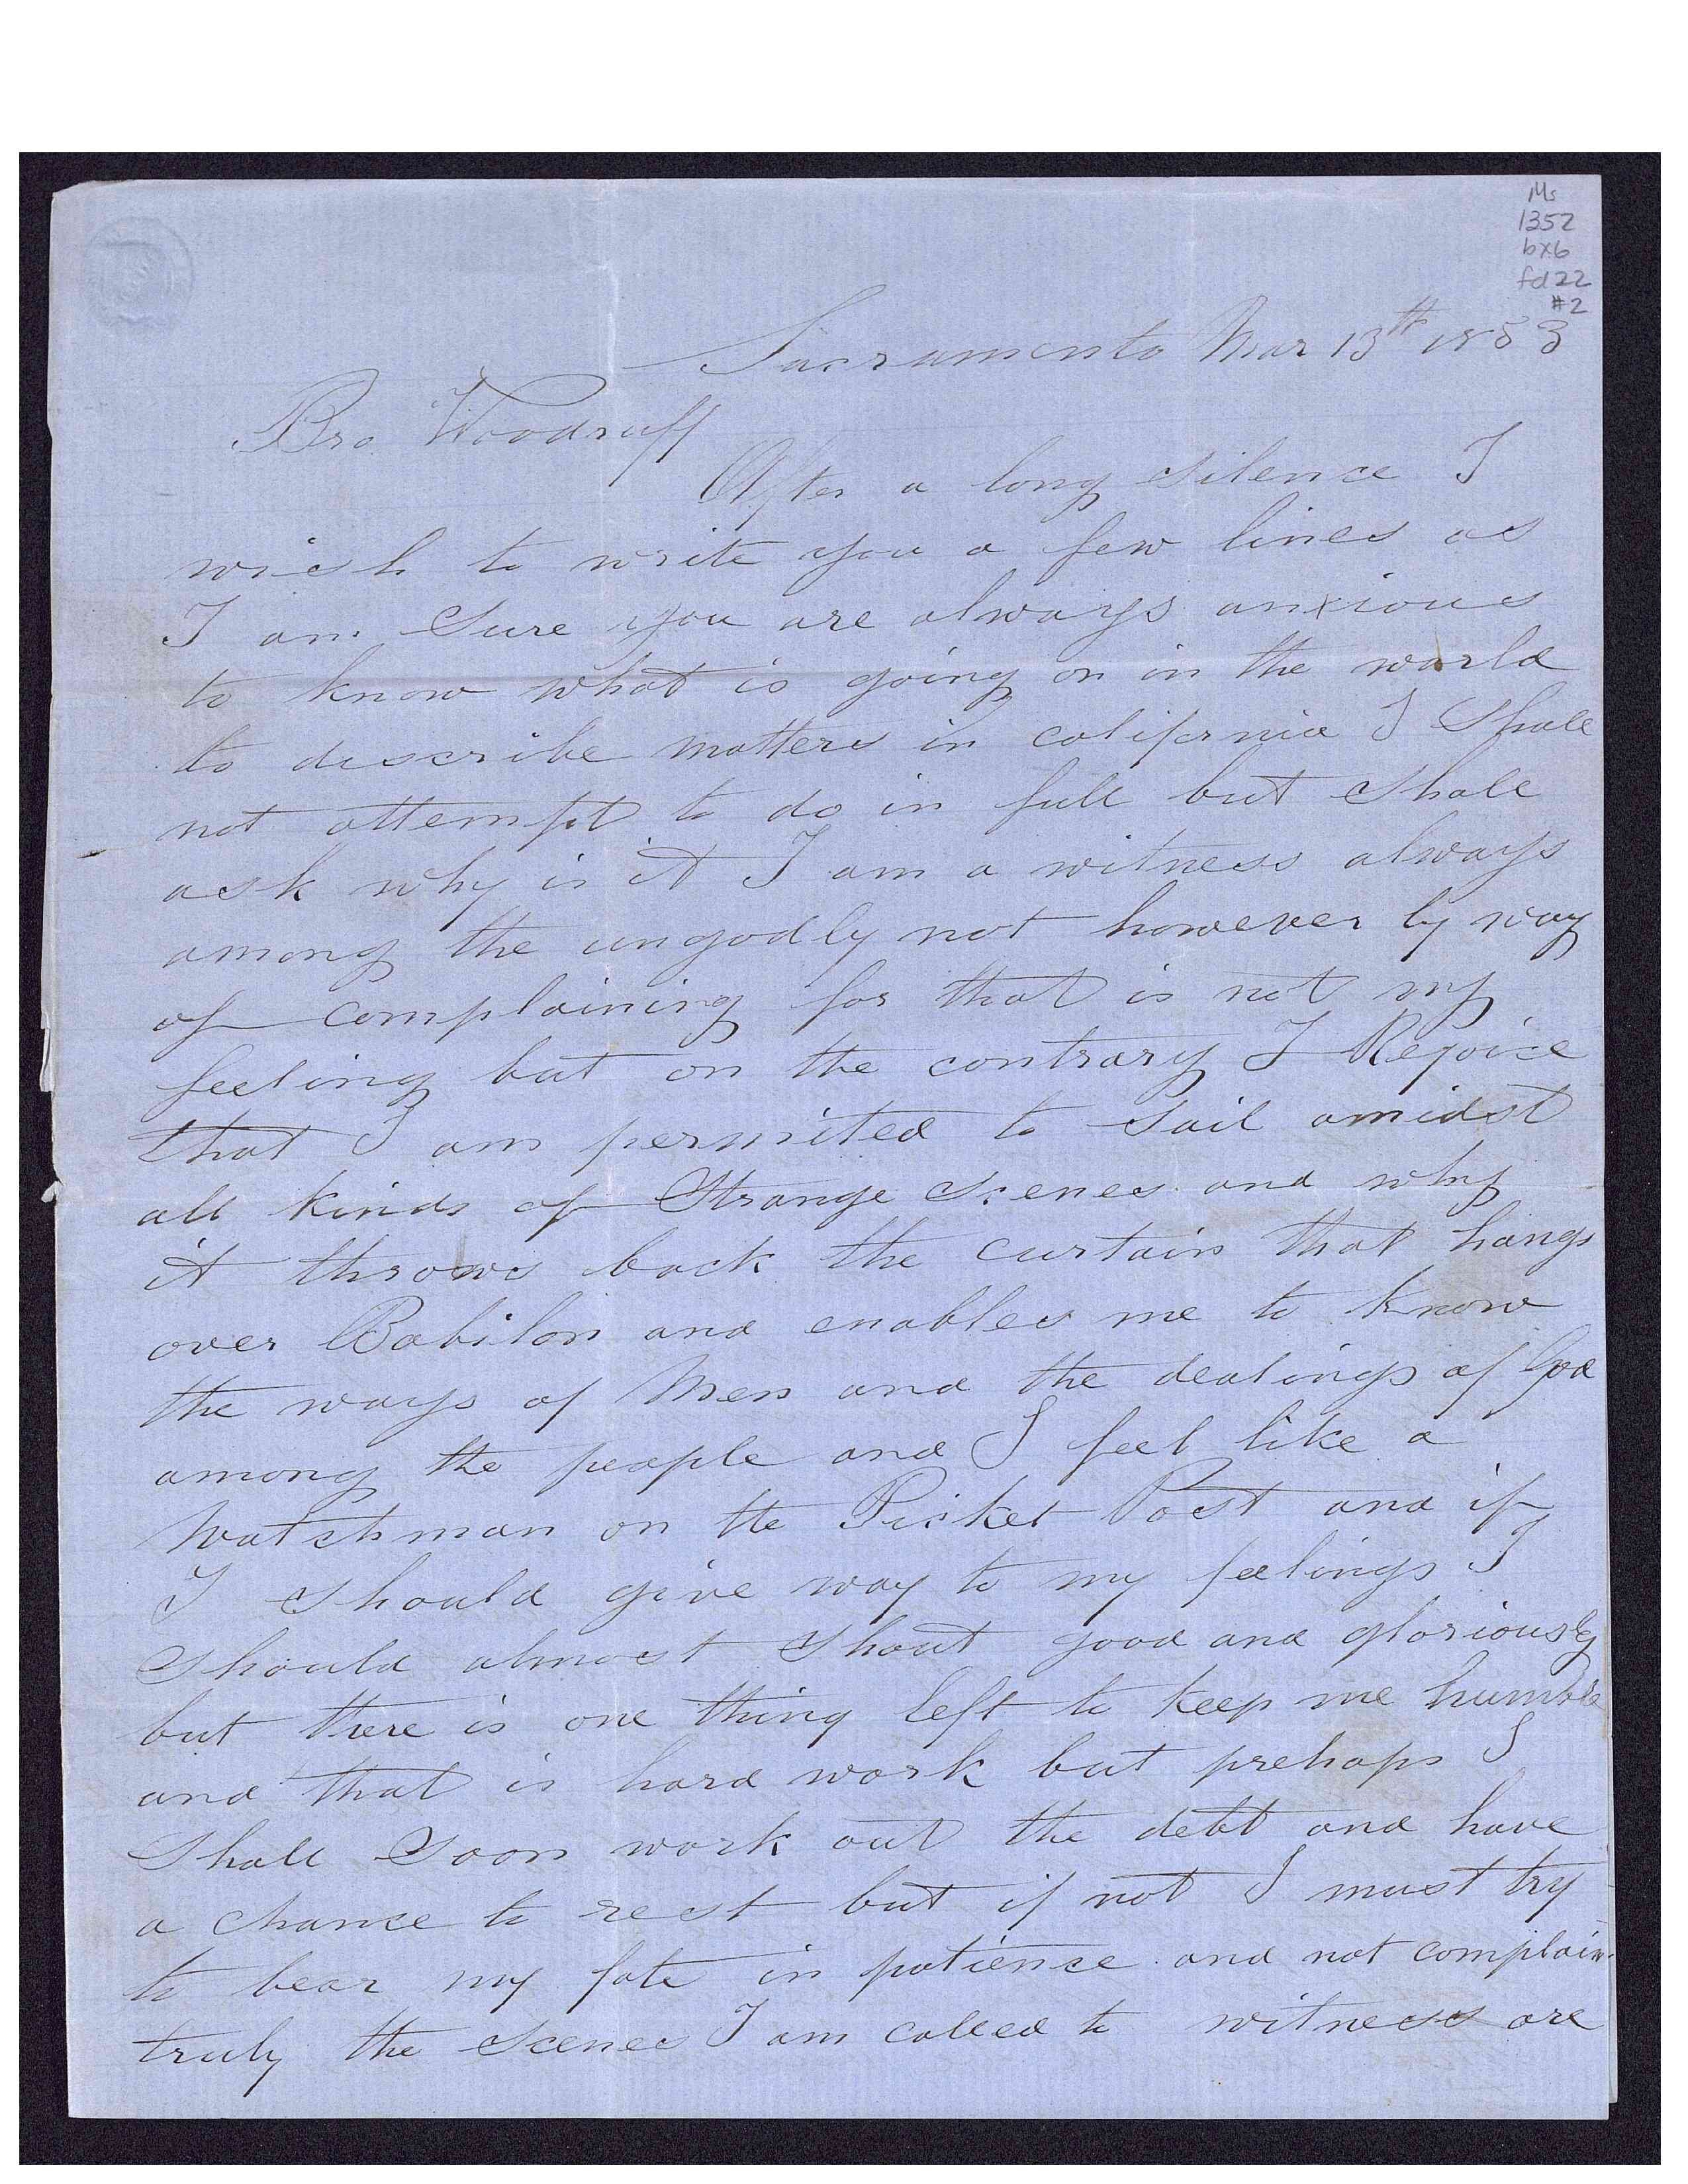 Ms
1352
bx6
fd 22
#2
Sacramento Mar 13th 1853
Bro. Woodruff
After a long silence I
wish to write you a few lines as
I am Sure you are always anxious
to know what is going on in the world
to describe matters in california I Shall
not attempt to do in full but shall
ask why is it I am a witness always
among the ungodly not however by way
of complaining for that is not my
feeling but on the contrary I Rejoice
that I am permited to sail amidst
all kinds of Strange scenes and why
it throws back the curtain that hangs
over Babilon and enables me to know
the ways of Men and the dealings of God
among the people and I feel like a
watchman on the Picket Post and if
I should give way to my feelings I
should almost shout good and gloriously
but there is one thing left to keep me humble
and that is hard work but prehaps I
shall soon work out the debt and have
a chance to rest but if not I must try
to bear my fate in patience and not complain.
truly the scenes I am called to witness are